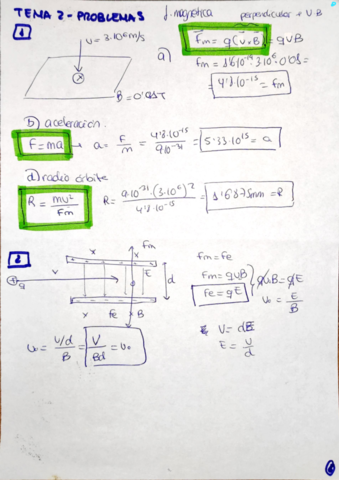 TEMA 2 - PROBLEMAS
f. magnética perpendicular a v·B
1
v = 3·10⁶ m/s
B = 0'01T
a)
Fm = q(v×B) = qvB
Fm = 1'6·10⁻¹⁹·3·10⁶·0'01 =
4'8·10⁻¹⁵ = fm
b) aceleración.
F = ma → a = F/m = 4'8·10⁻¹⁵/9·10⁻³¹ = 5'33·10¹⁵ = a
d) radio órbita
R = mv²/Fm R = 9·10⁻³¹·(3·10⁶)²/4'8·10⁻¹⁵ = 1'6875mm = R
2
x x Fm
v E d
+ q
x Fe B
fm = fe
fm = qvB
fe = qE
qvB = qE
v₀ = E/B
V = dE
E = V/d
v₀ = V/d/B = V/Bd = v₀